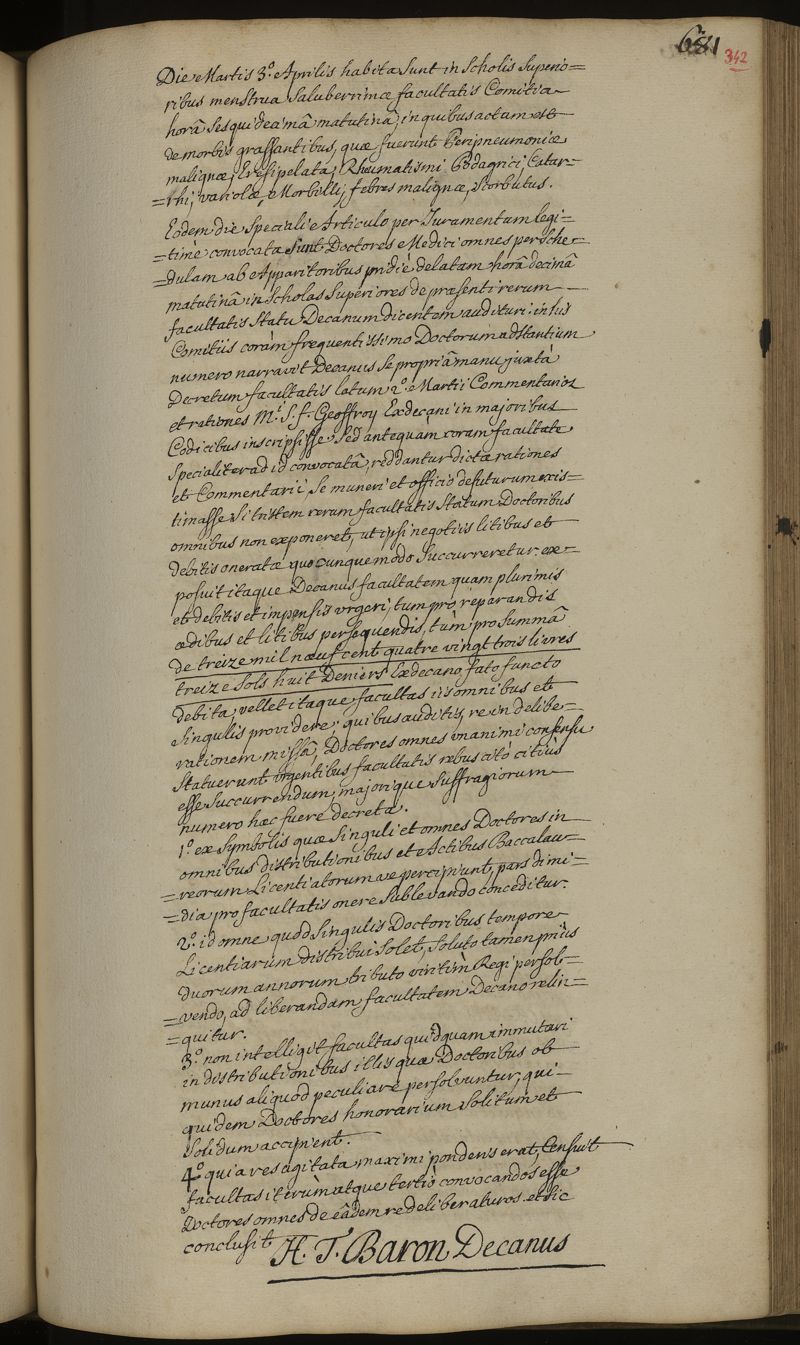 681
342
Die Martis 3.° Aprilis habita sunt in scholis superio=
ribus menstrua saluberrimæ facultatis Comitia
horâ sesquidecimâ matutinâ, in quibus actum est
de morbis grassantibus, quæ fuerunt Peripneumoniæ
malignæ, Eresipelata, Rheumatismi Podagrici Catar=
=rhi, variolæ, Morbilli, febres malignæ, Scorbutus.
Eodem die speciali Articulo per Juramentum legi=
=timè convocata sunt Doctores Medici omnes per sche=
=dulam ab Apparitoribus pridiè delatam horâ decimâ
matutinâ in scholas superiores de præsenti rerum
facultatis statu Decanum dicentem audituri: in his
Comitiis coràm frequentissimo Doctorum adstantium
numero narravit Decanus se propriâ manu juxtà
Decretum facultatis latum 2.° Martii Commentarios
et rationes M.r S. f. Geoffroy Exdecani in majoribus
Codicibus inscripsisse sed antequàm coram facultate
specialiter ad id convocatâ, reddantur dictæ rationes
et Commentarii, se muneri et officio defuturum exis=
timasse si tristem rerum facultatis statum Doctoribus
omnibus non exponeret, ut ipsi negotiis litibus et
debitis oneratæ quocunque modo succurreretur. ex=
posuit itaque Decanus facultatem quam plurimis
et debitis et impensis urgeri, tum pro reparandis
ædibus et litibus persequendis, tùm pro summâ
de treize mil nœuf cent quatre vingt trois livres
treize sols huit Deniers Exdecano fato functo
debita, vellet itaque facultas iis omnibus et
singulis providere; quibus auditis, re in delibe=
rationem missâ, Doctores omnes unanimi consensu
statuerunt urgentibus facultatis rebus citò citiùs
esse succurrendum, majorique suffragiorum
numero hæc fuere decreta.
1.° ex symbolis quæ singuli et omnes Doctores in
omnibus distributionibus et Actibus Baccalau=
=reorum Licentiatorumve percipiunt, pars dimi=
=dia pro facultatis onere sublevando conceditur.
2.° id omne quod singulis Doctoribus tempore
Licentiarum distribui solet, soluto tamen priùs
duorum annorum tributo viritìm Regi persol=
=vendo, ad liberandam facultatem Decano relin=
=quitur.
3.° non intelligit facultas quidquam immutari
in distributionibus illis quæ Doctoribus ob
munus aliquod peculiare persolvuntur; qui=
quidem Doctores honorarium solitum et
solidum accipient.
4.° quia res agitata maximi ponderis erat, Censuit
facultas iterùm atque tertiò convocandos esse
Doctores omnes de eâdem re deliberaturos. et sic
conclusit H. T. Baron Decanus